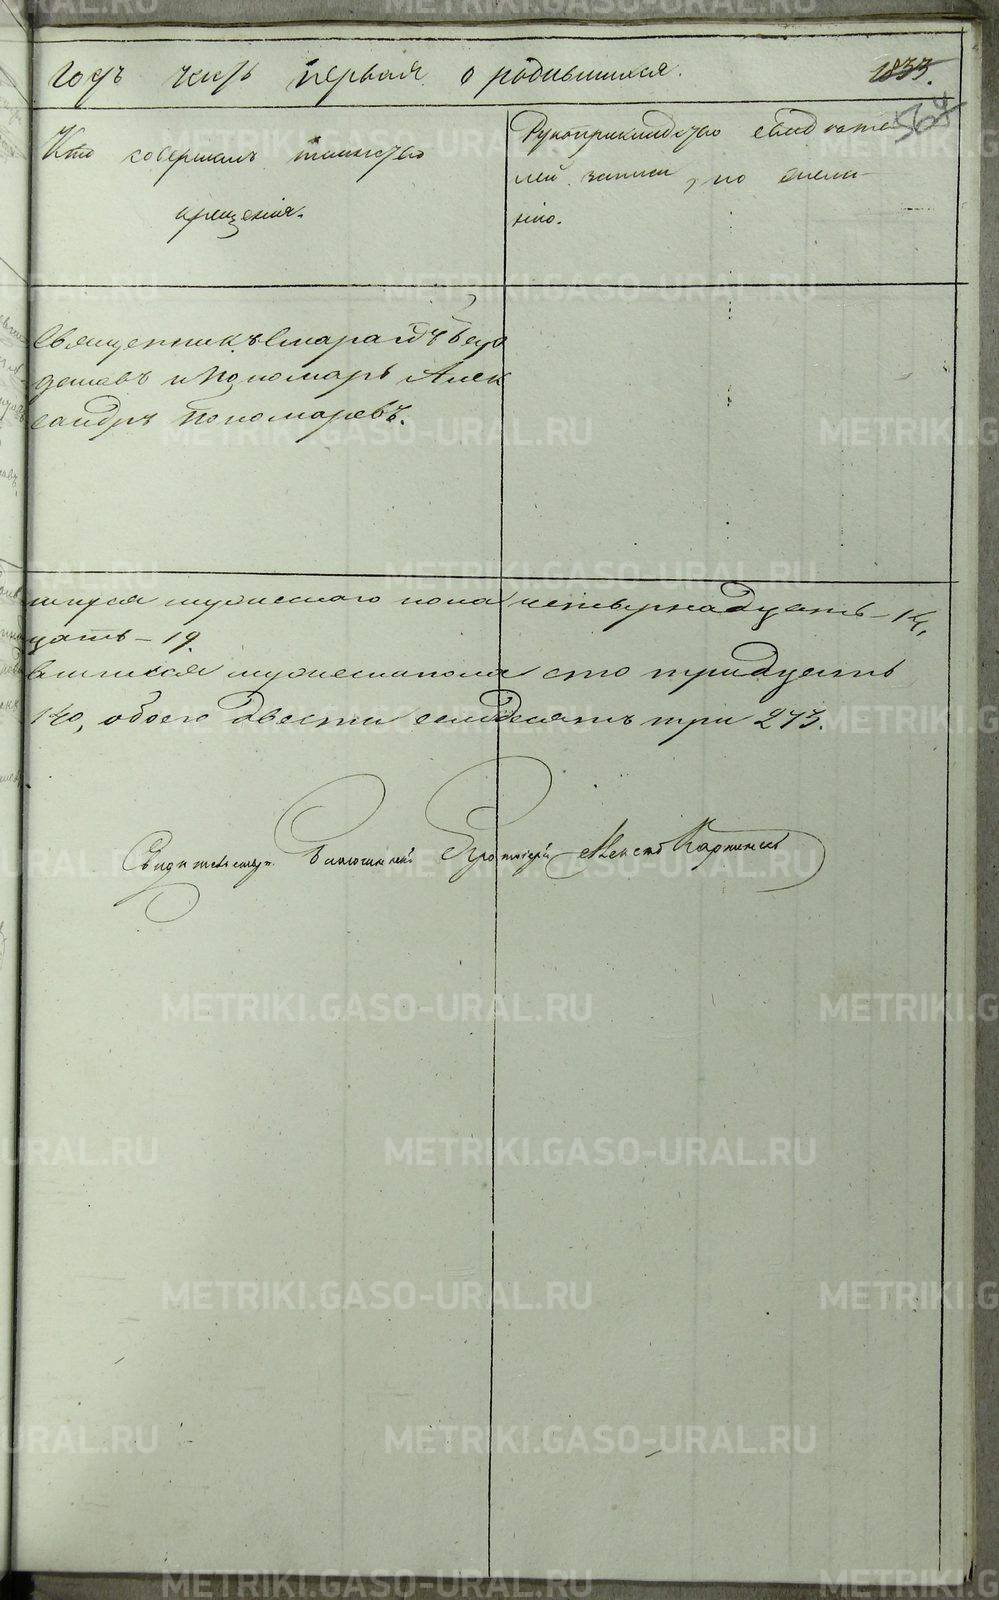 годъ часть первая о родившихся. 1833.
564
Кто совершалъ таинство
крещенiя.
Рукоприкладство свидѣте
лей записи, по жела
нiю.
Священникъ Смарагдъ
и Пономарь Алек
сандръ Пономаревъ.
мужескаго пола четырнадцать – 14,
цать – 19.
вшихся мужеска пола сто тридцать
140, обоего двѣсти семдесятъ три 273.
Свидѣтельствовалъ Благочинный Протоiерей
METRIKI.GASO-URAL.RU